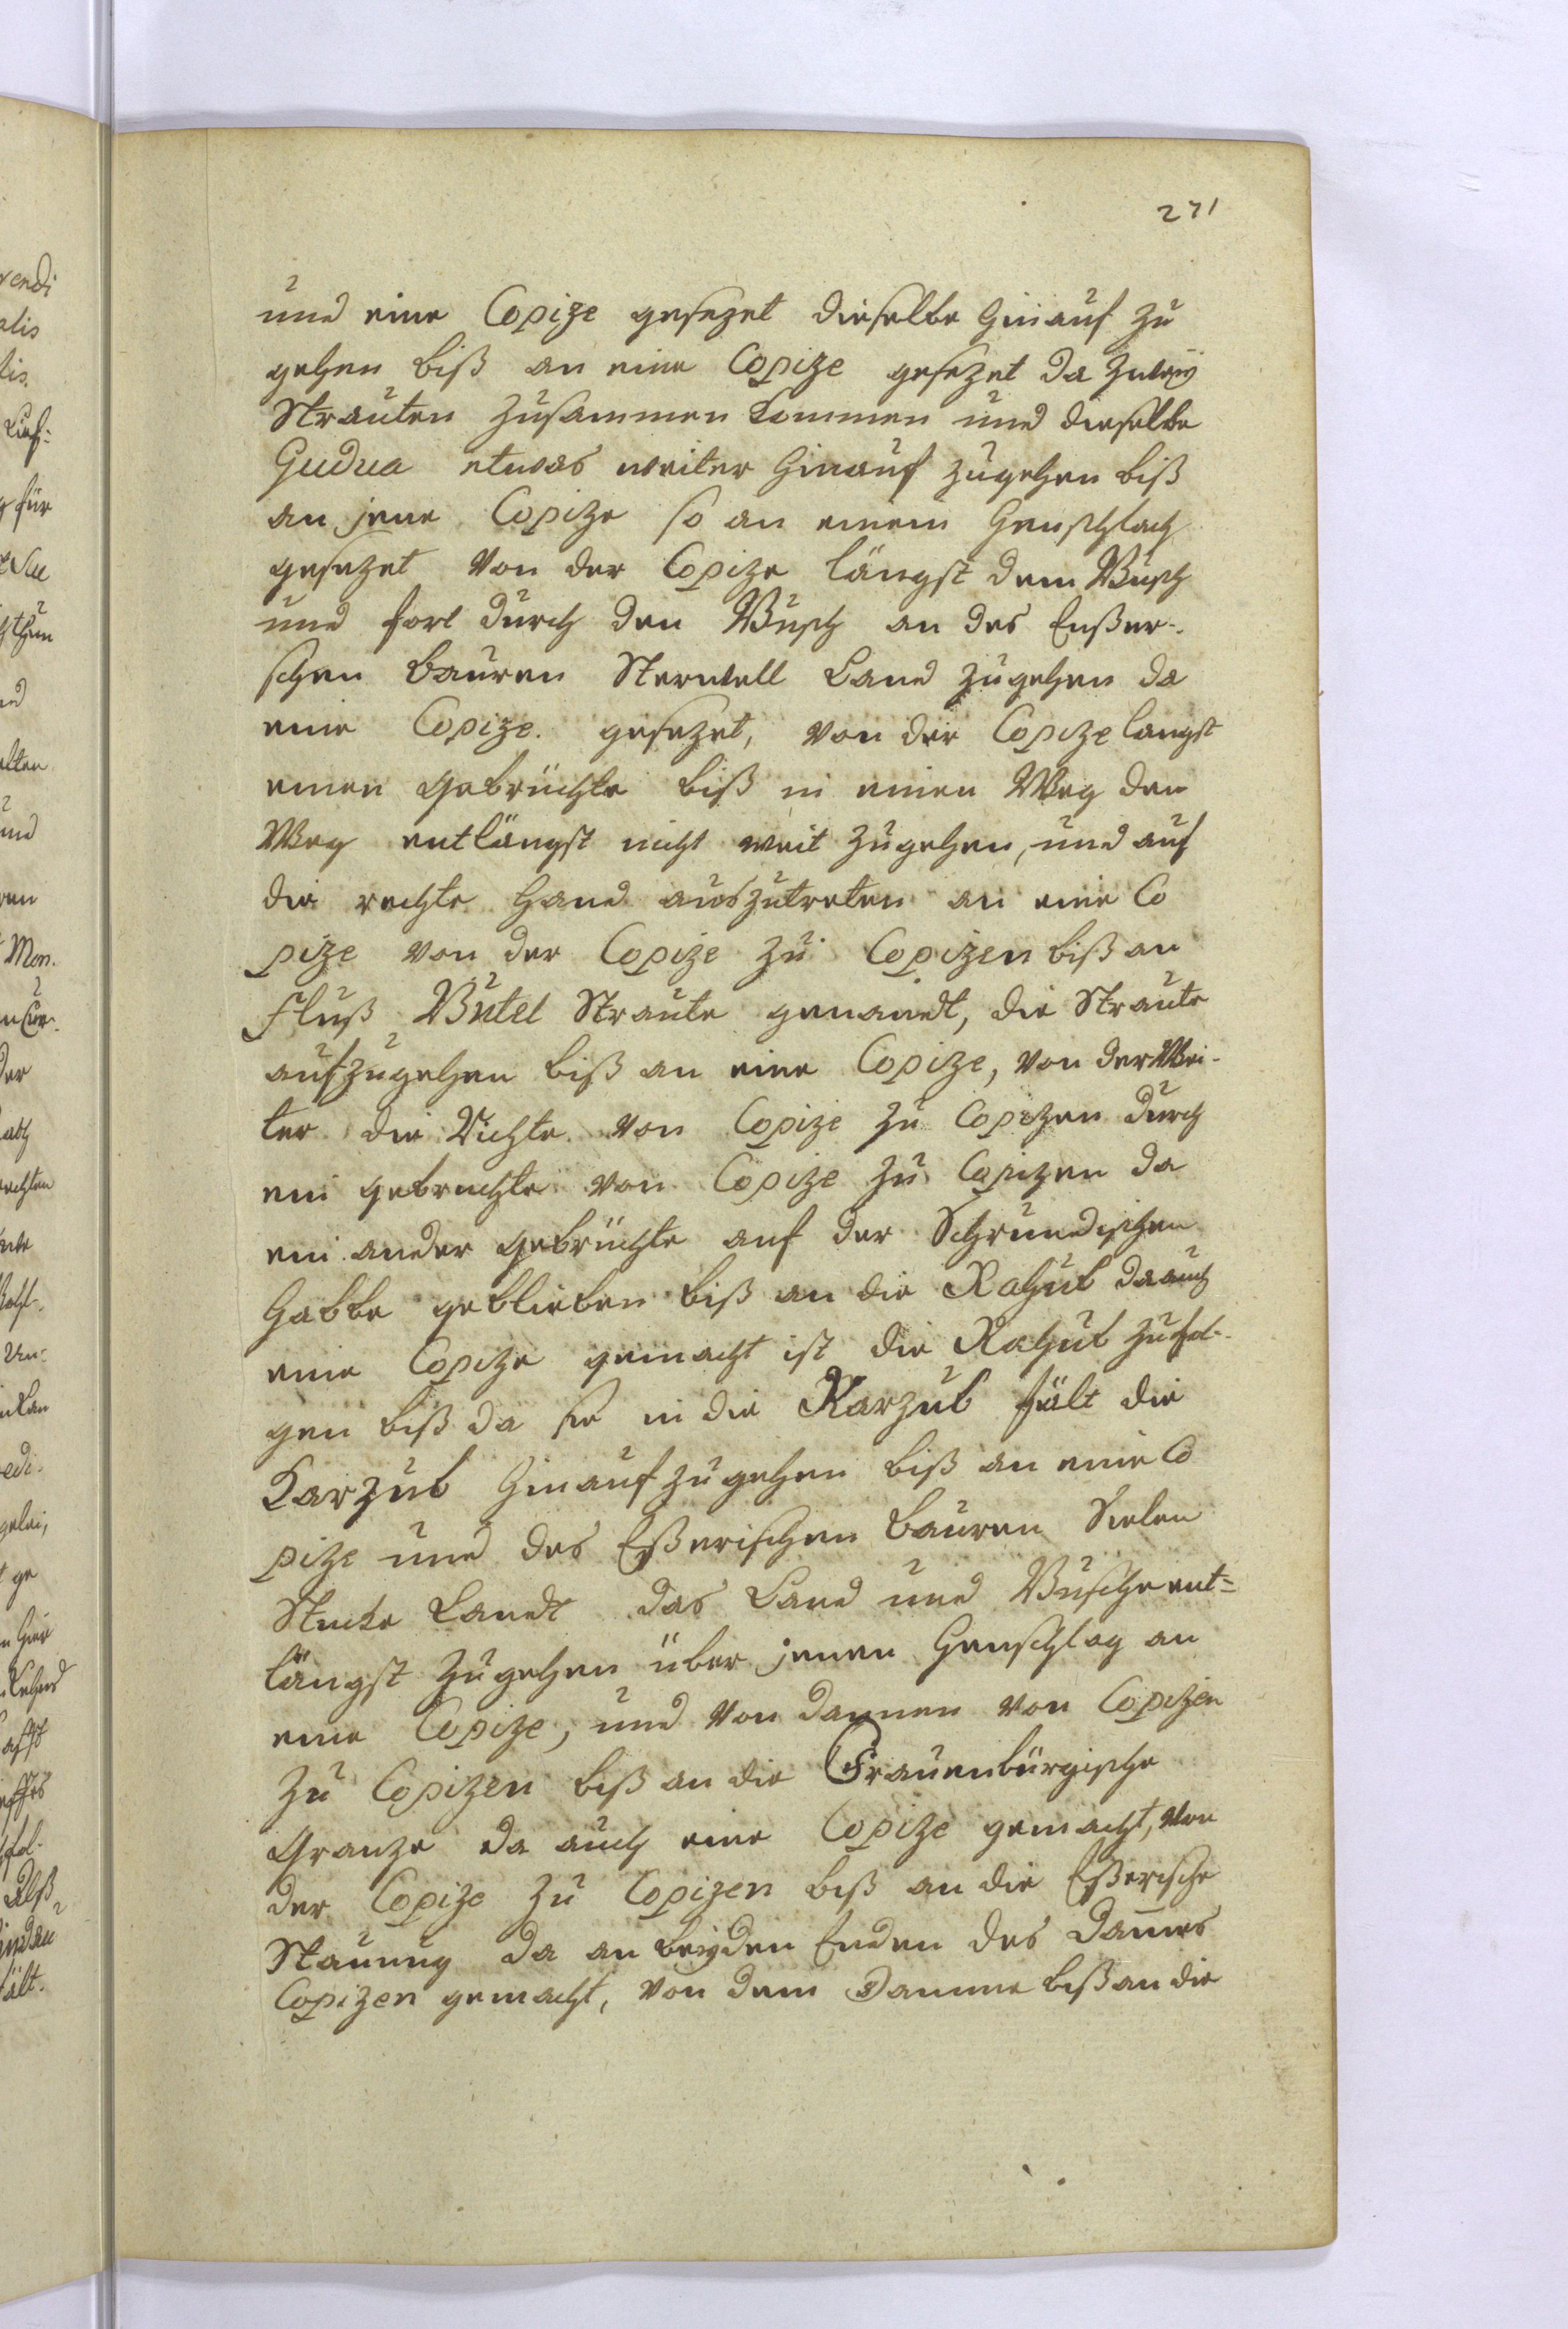 271
und eine Copize gesezet dieselbe hinauf zu
gehen biß an eine Copize gesezet da zweÿ
Strauten zusammen kommen und dieselbe
Gudua etwas weiter hinauf zugehen biß
an jene Copize so an einem Heuschlach
gesezet von der Copize längst dem Busch
und fort durch den Busch an des Enßer-
schen Bauren Sterwell Land zugehen da
eine Copize gesezet, von der Copize langst
einen Gebrüchte biß in einen Weg den
Weg entlängst nicht weit zugehen, und auf
die rechte Hand auszutreten an eine Co
pize von der Copize zu Copizen biß an
Fluß Butel Straute genandt, die Straute
aufzugehen biß an eine Copize, von der Wei-
ter die Richte von Copize zu Copizen durch
ein gebruchte von Copize zu Copizen da
ein ander Gebrüchte auf der Schrundischen
Habbe geblieben biß an die Rahub da auch
eine Copize gemacht ist die Rahub zufol-
gen biß da sie in die Karzub fält die
Karzub hinauf zugehen biß an eine Co
pize und des Eßerischen Bauren Sielen
Stucke Landt das Land und Busche ent=
längst zugehen über jenen Heuschlag an
eine Copize, und von dannen von Copizen
zu Copizen biß an die Frauenbürgische
Granze da auch eine Copize gemacht, von
der Copize zu Copizen biß an die Eßerische
Stauung da an beÿden Enden des Dam̄es
Copizen gemacht, von dem Damme biß an die